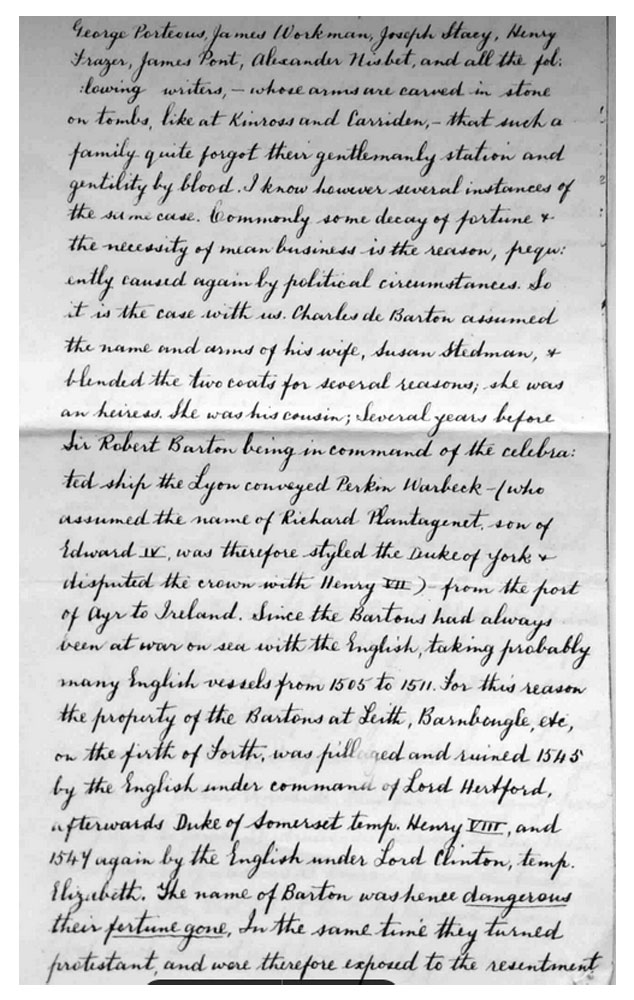 George Porteous, James Workman, Joseph Stacy, Henry
Frazer, James Pont, Alexander Nisbet, and all the fol:
:lowing writers, – whose arms are carved in stone
on tombs, like at Kinross and Carriden, – that such a
family quite forgot their gentlemanly station and
gentility by blood. I know however several instances of
the same case. Commonly some decay of fortune &
the necessity of mean business is the reason, frequ:
ently caused again by political circumstances. So
it is the case with us. Charles de Barton assumed
the name and arms of his wife, Susan Stedman, &
blended the two coats for several reasons; she was
an heiress. She was his cousin; Several years before
Sir Robert Barton being in command of the celebra:
ted ship the Lyon conveyed Perkin Warbeck – (who
assumed the name of Richard Plantagenet, son of
Edward IV, was therefore styled the Duke of York &
disputed the crown with Henry VII) from the port
of Ayr to Ireland. Since the Bartons had always
been at war on sea with the English, taking probably
many English vessels from 1505 to 1511. For this reason
the property of the Bartons at Leith, Barnbougle, etc,
on the firth of Forth, was pillaged and ruined 1545
by the English under command of Lord Hertford,
afterwards Duke of Somerset temp. Henry VIII, and
1547 again by the English under Lord Clinton, temp.
Elizabeth. The name of Barton was hence dangerous
their fortune gone, In the same time they turned
protestant, and were therefore exposed to the resentment